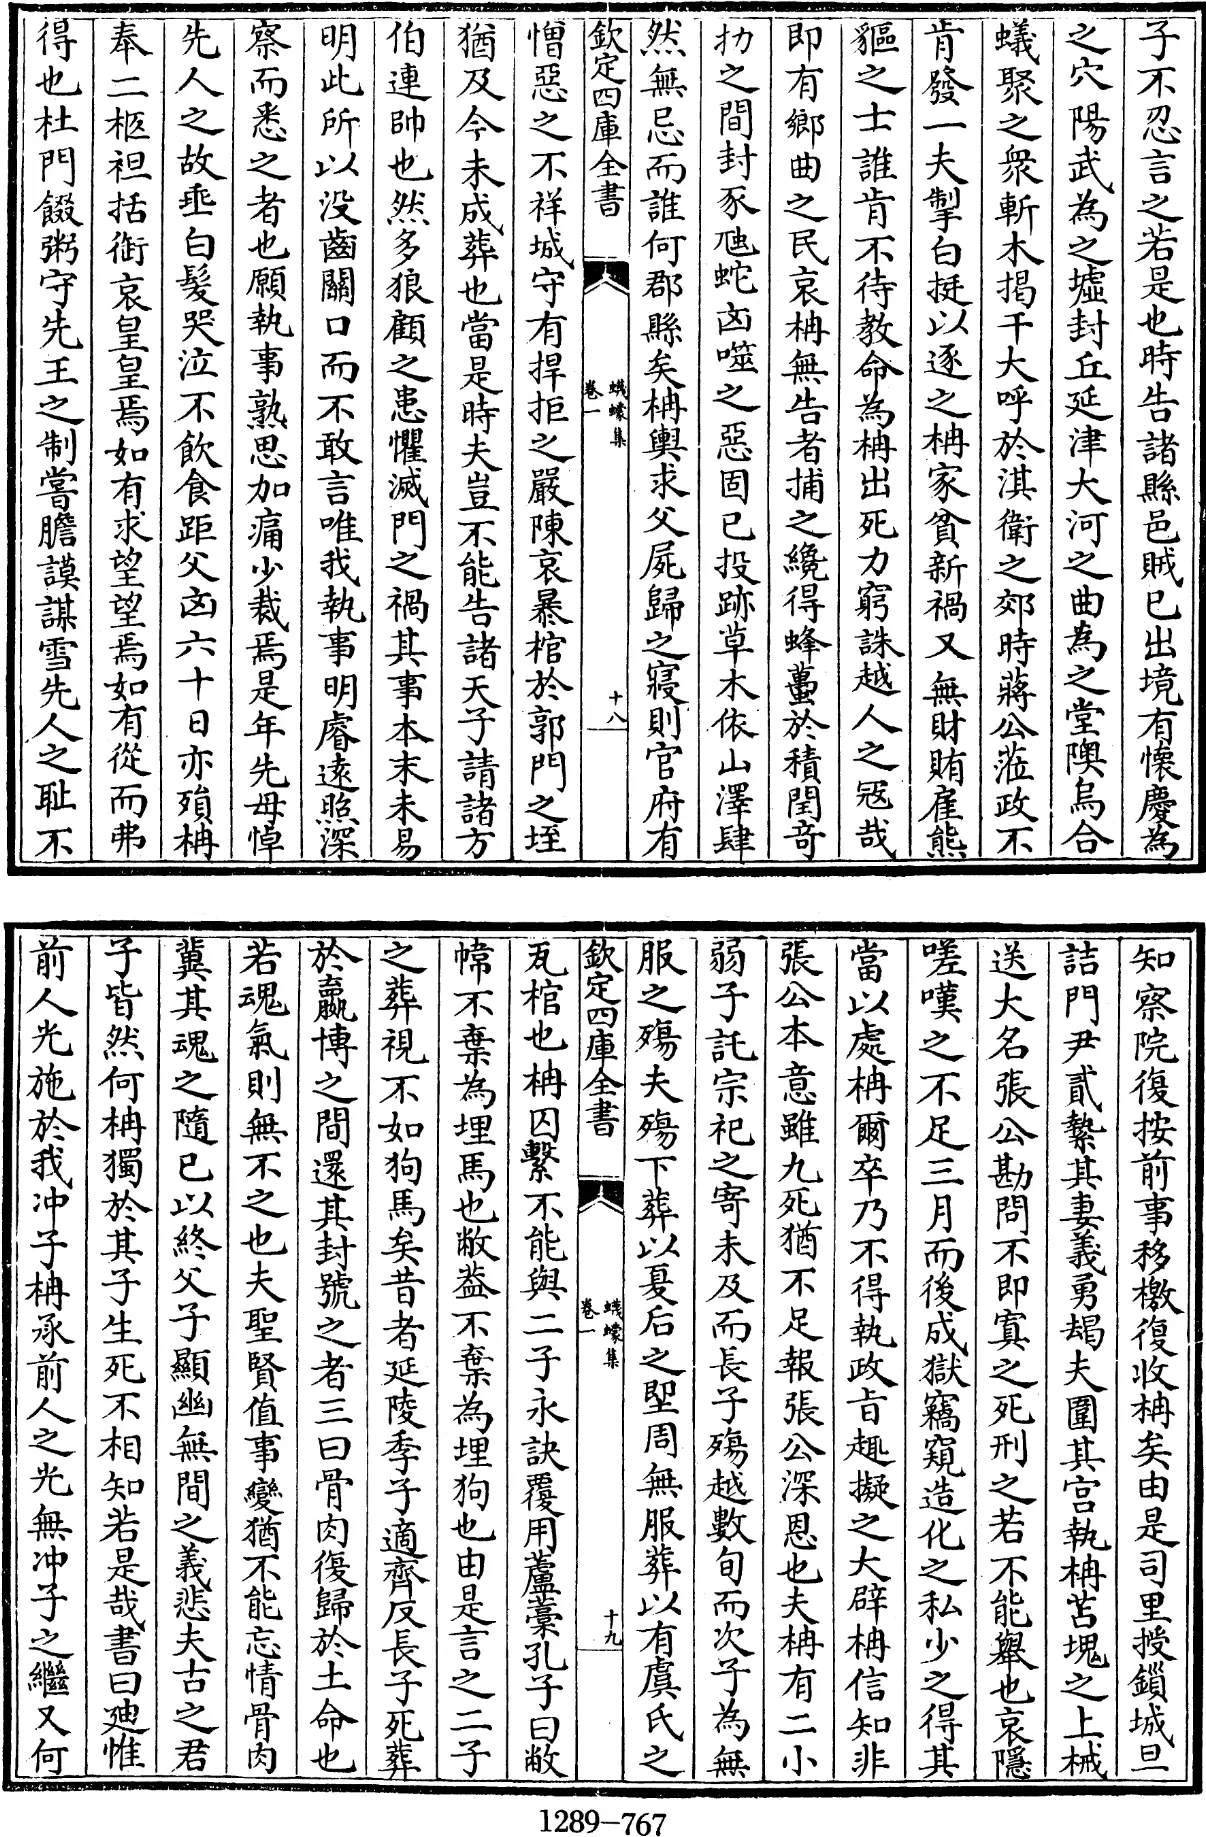 子不忍言之若是也時告諸縣邑賊已出境有懷慶為
之穴陽武為之墟封丘延津大河之曲為之堂隩烏合
蟻聚之衆斬木揭干大呼於淇衛之郊時蔣公蒞政不
肯發一夫掣白挺以逐之柟家貧新禍又無財賄雇熊
貙之士誰肯不待教命為柟出死力窮誅越人之冦哉
即有鄉曲之民哀柟無告者捕之纔得蜂蠆於積閏竒
扐之間封豕虺蛇凶噬之惡固已投跡草木依山澤肆
然無忌而誰何郡縣矣柟輿求父屍歸之寢則官府有
欽定四庫全書
蠛蠓集
卷一
十八
憎惡之不祥城守有捍拒之嚴陳哀暴棺於郭門之垤
猶及今未成葬也當是時夫豈不能告諸天子請諸方
伯連帥也然多狼顧之患懼滅門之禍其事本末未易
明此所以没齒關口而不敢言唯我執事明睿逺照深
察而悉之者也願執事熟思加痛少裁焉是年先母悼
先人之故垂白髮哭泣不飲食距父凶六十日亦殞柟
奉二柩袒括銜哀皇皇焉如有求望望焉如有從而弗
得也杜門餟粥守先王之制嘗膽謨謀雪先人之恥不
知察院復按前事移檄復收柟矣由是司里授鎖城旦
詰門尹貳縶其妻義勇朅夫圍其宫執柟苫塊之上械
送大名張公勘問不即寘之死刑之若不能舉也哀隱
嗟嘆之不足三月而後成獄竊窺造化之私少之得其
當以處柟爾卒乃不得執政旨趣擬之大辟柟信知非
張公本意雖九死猶不足報張公深恩也夫柟有二小
弱子託宗祀之寄未及而長子殤越數旬而次子為無
服之殤夫殤下葬以夏后之堲周無服葬以有虞氏之
欽定四庫全書
蠛蠓集
卷一
十九
瓦棺也柟囚繫不能與二子永訣覆用蘆藁孔子曰敝
幃不棄為埋馬也敝蓋不棄為埋狗也由是言之二子
之葬視不如狗馬矣昔者延陵季子適齊反長子死葬
於嬴博之間還其封號之者三曰骨肉復歸於土命也
若魂氣則無不之也夫聖賢值事變猶不能忘情骨肉
冀其魂之隨已以終父子顯幽無間之義悲夫古之君
子皆然何柟獨於其子生死不相知若是哉書曰廸惟
前人光施於我冲子柟承前人之光無冲子之繼又何
1289-767